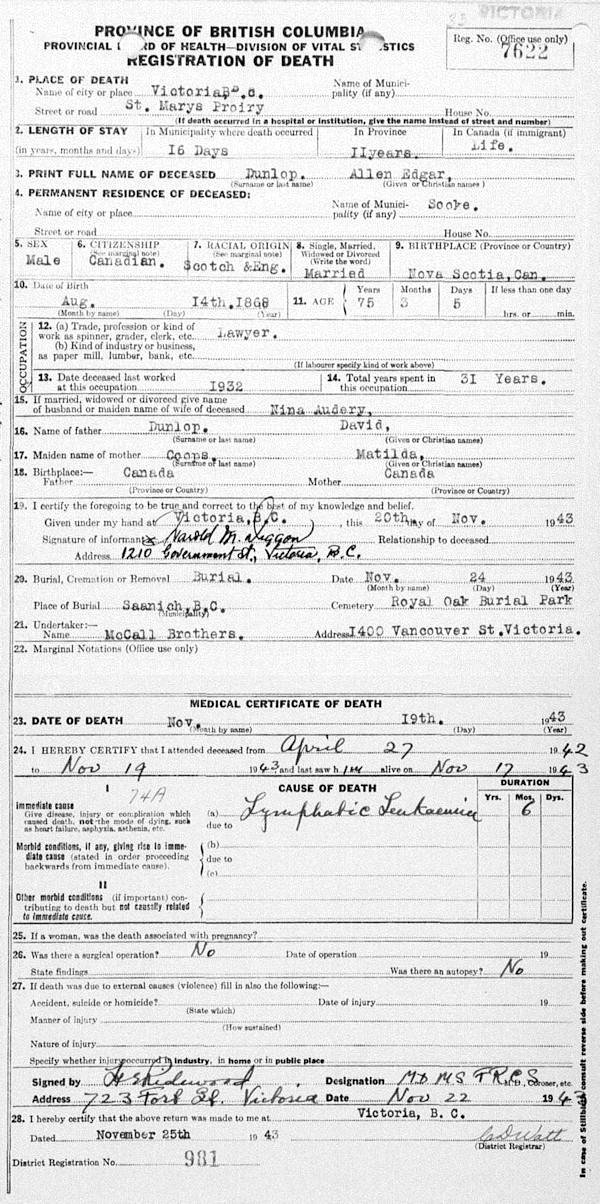 VICTORIA
PROVINCE OF BRITISH COLUMBIA
PROVINCIAL BOARD OF HEALTH—DIVISION OF VITAL STATISTICS
REGISTRATION OF DEATH
Reg. No. (Office use only)
7622
1. PLACE OF DEATH
Name of city or place Victoria, B.C. Name of Municipality (if any)
Street or road St. Marys Proiry House No.
(If death occurred in a hospital or institution, give the name instead of street and number)
2. LENGTH OF STAY In Municipality where death occurred In Province In Canada (if immigrant)
(in years, months and days) 16 Days 11years. Life.
3. PRINT FULL NAME OF DECEASED Dunlop. Allen Edgar,
(Surname or last name) (Given or Christian names)
4. PERMANENT RESIDENCE OF DECEASED:
Name of city or place Name of Municipality (if any) Sooke.
Street or road House No.
5. SEX 6. CITIZENSHIP 7. RACIAL ORIGIN 8. Single, Married, Widowed or Divorced 9. BIRTHPLACE (Province or Country)
(See marginal note) (See marginal note) (Write the word)
Male Canadian. Scotch &Eng. Married Nova Scotia,Can.
10. Date of Birth 11. AGE Years Months Days If less than one day
Aug. 14th.1868 75 3 5 hrs. or min.
(Month by name) (Day) (Year)
OCCUPATION
12. (a) Trade, profession or kind of work as spinner, grader, clerk, etc. Lawyer.
(b) Kind of industry or business, as paper mill, lumber, bank, etc.
(If labourer specify kind of work above)
13. Date deceased last worked at this occupation 1932 14. Total years spent in this occupation 31 Years.
15. If married, widowed or divorced give name of husband or maiden name of wife of deceased Nina Audery,
16. Name of father Dunlop. David,
(Surname or last name) (Given or Christian names)
17. Maiden name of mother Coops. Matilda,
(Surname or last name) (Given or Christian names)
18. Birthplace:— Father Canada Mother Canada
(Province or Country) (Province or Country)
19. I certify the foregoing to be true and correct to the best of my knowledge and belief.
Given under my hand at Victoria,B.C. , this 20th. day of Nov. 1943
Signature of informant x Harold M. Diggon Relationship to deceased
Address 1210 Government St., Victoria, B.C.
20. Burial, Cremation or Removal Burial. Date Nov. 24 1943
(Month by name) (Day) (Year)
Place of Burial Saanich,B.C. Cemetery Royal Oak Burial Park
(Municipality)
21. Undertaker:—
Name McCall Brothers. Address 1400 Vancouver St.Victoria.
22. Marginal Notations (Office use only)
MEDICAL CERTIFICATE OF DEATH
23. DATE OF DEATH Nov. 19th. 1943
(Month by name) (Day) (Year)
24. I HEREBY CERTIFY that I attended deceased from April 27 1942
to Nov 19 1943 and last saw him alive on Nov 17 1943
I CAUSE OF DEATH DURATION
74A Yrs. Mos. Dys.
Immediate cause (a) Lymphatic Leukaemia 6
Give disease, injury or complication which caused death, not the mode of dying, such as heart failure, asphyxia, asthenia, etc.
due to
Morbid conditions, if any, giving rise to immediate cause (stated in order proceeding backwards from immediate cause).
(b)
due to
(c)
II
Other morbid conditions (if important) contributing to death but not causally related to immediate cause.
25. If a woman, was the death associated with pregnancy?
26. Was there a surgical operation? No Date of operation 19
State findings Was there an autopsy? No
27. If death was due to external causes (violence) fill in also the following:—
Accident, suicide or homicide? Date of injury 19
(State which)
Manner of injury
(How sustained)
Nature of injury
Specify whether injury occurred in industry, in home or in public place
Signed by Designation M.D M S F.R.C.S M.D., Coroner, etc.
Address 723 Fort St. Victoria Date Nov 22 1943
28. I hereby certify that the above return was made to me at Victoria, B. C.
Dated November 25th 1943
(District Registrar)
District Registration No. 981
In case of Stillbirth consult reverse side before making out certificate.